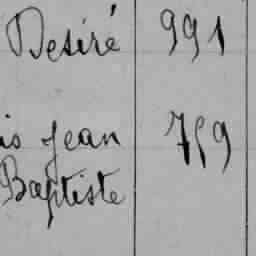 Desiré 991
is Jean 759
Baptiste